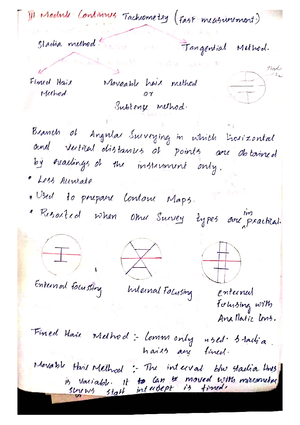 III Module Continues Tacheometry (Fast measurement)
Stadia method
Tangential Method.
Fixed Hair
Method
Moveable hair method
or
Subtense method.
Branch of Angular Surveying in which horizontal
and vertical distances of points are obtained
by readings of the instrument only.
• Less Accurate
• Used to prepare Contour Maps.
• Resorted when other survey types are impractical.
External Focussing
Internal Focussing
external
focusing with
Anallatic lens.
Fixed Hair Method :- Commonly used. Stadia
hairs are fixed.
Movable Hair Method :- The interval b/w stadia lines
is variable. it can be moved with micrometer
screws. staff intercept is fixed.